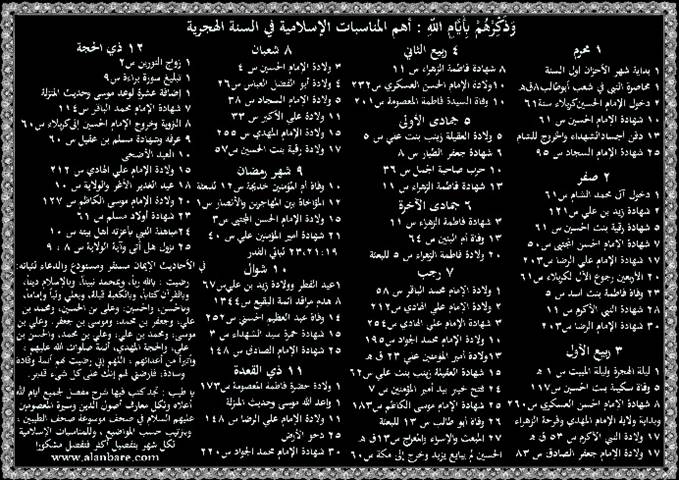 وَذَكِّرْهُمْ بِأَيَّامِ اللَّهِ : أهم المناسبات الإسلامية في السنة الهجرية
١ محرم
١ بداية شهر الأحزان أول السنة
١ محاصرة النبي في شعب أبوطالب
٢ دخول الإمام الحسين كربلاء سنة ٦١
١٠ شهادة الإمام الحسين س ٦١
١٣ دفن أجساد الشهداء والخروج للشام
٢٥ شهادة الإمام السجاد س ٩٥
٢ صفر
١ دخول آل محمد الشام س ٦١
٢ شهادة زيد بن علي س ١٢١
٥ شهادة رقية بنت الحسين س ٦١
٧ شهادة الإمام الحسن المجتبى س ٥٠
١٧ شهادة الإمام علي الرضا س ٢٠٣
٢٠ الأربعين رجوع الآل لكربلاء س ٦١
٢٣ وفاة فاطمة بنت أسد س ٥
٢٨ شهادة النبي الأكرم س ١١
٣٠ شهادة الإمام الرضا س ٢٠٣
٣ ربيع الأول
١ ليلة الهجرة وليلة المبيت س ١ هـ
٥ وفاة سكينة بنت الحسين س ١١٧
٨ شهادة الإمام الحسن العسكري س ٢٦٠
وبداية ولاية الإمام المهدي وفرحة الزهراء
١٧ ولادة النبي الأكرم س ٥٣ ق هـ
١٧ ولادة الإمام جعفر الصادق س ٨٣
٤ ربيع الثاني
٨ شهادة فاطمة الزهراء س ١١
١٠ ولادة الإمام الحسن العسكري س ٢٣٢
١٠ وفاة السيدة فاطمة المعصومة س ٢٠١
٥ جمادى الأولى
٥ ولادة العقيلة زينب بنت علي س ٥
٦ شهادة جعفر الطيار س ٨
١٠ حرب صاحبة الجمل س ٣٦
١٣ شهادة فاطمة الزهراء س ١١
٦ جمادى الآخرة
٣ شهادة فاطمة الزهراء س ١١
١٣ وفاة أم البنين س ٦٤
٢٠ ولادة فاطمة الزهراء س ٥ للبعثة
٧ رجب
١ ولادة الإمام محمد الباقر س ٥٨
٢ ولادة الإمام علي الهادي س ٢١٢
٣ شهادة الإمام علي الهادي س ٢٥٤
١٠ ولادة الإمام محمد الجواد س ١٩٥
١٣ ولادة أمير المؤمنين علي ٢٣ ق هـ
١٥ شهادة العقيلة زينب بنت علي س ٦٢
٢٤ فتح خيبر بيد أمير المؤمنين س ٧
٢٥ شهادة الإمام موسى الكاظم س ١٨٣
٢٦ وفاة أبو طالب س ١٠ للبعثة
٢٧ المبعث والإسراء والمعراج س ١٣ ق هـ
الحسين لم يبايع يزيد وخرج إلى مكة س ٦٠
٨ شعبان
٣ ولادة الإمام الحسين س ٤
٤ ولادة أبو الفضل العباس س ٢٦
٥ ولادة الإمام السجاد س ٣٨
١١ ولادة علي الأكبر س ٣٣
١٥ ولادة الإمام المهدي س ٢٥٥
١٧ ولادة رقية بنت الحسين س ٥٧
٩ شهر رمضان
١٠ وفاة أم المؤمنين خديجة س ١٢ للبعثة
١٢ المؤاخاة بين المهاجرين والأنصار س ١
١٥ ولادة الإمام الحسن المجتبى س ٣
٢١ شهادة أمير المؤمنين علي س ٤٠
٢٣،٢١،١٩ ليالي القدر
١٠ شوال
١ عيد الفطر وولادة زيد بن علي س ٦٧
٨ هدم مراقد أئمة البقيع س ١٣٤٤
٤ وفاة عبد العظيم الحسني س ٢٥٢
١٥ شهادة حمزة سيد الشهداء س ٣
٢٥ شهادة الإمام الصادق س ١٤٨
١١ ذي القعدة
١ ولادة حضرة فاطمة المعصومة س ١٧٣
١ واعد الله موسى وحديث المنزلة
١١ ولادة الإمام علي الرضا س ١٤٨
٢٥ دحو الأرض
٣٠ شهادة الإمام محمد الجواد س ٢٢٠
١٢ ذي الحجة
١ زواج النورين س ٢
١ تبليغ سورة براءة س ٩
١ إضافة عشرة لوعد موسى وحديث المنزلة
٧ شهادة الإمام محمد الباقر س ١١٤
٨ التروية وخروج الإمام الحسين إلى كربلاء س ٦٠
٩ عرفة وشهادة مسلم بن عقيل س ٦٠
١٠ العيد الأضحى
١٥ ولادة الإمام علي الهادي س ٢١٢
١٨ عيد الغدير الأغر والولاية س ١٠
٢٠ ولادة الإمام موسى الكاظم س ١٢٧
٢٣ شهادة أولاد مسلم س ٦١
٢٤ مباهلة النبي بأعزته أهل بيته س ١٠
٢٥ نزول هل أتى وآية الولاية س ٨ ، ٩
في الأحاديث الإيمان مستقر ومستودع والدعاء لثباته:
رضيت : بالله رباً، وبمحمد نبياً، وبالإسلام ديناً،
وبالقرآن كتاباً، وبالكعبة قبلة، وبعلي ولياً وإماماً،
وبالحسن، والحسين، وعلي بن الحسين، ومحمد بن
علي، وجعفر بن محمد، وموسى بن جعفر، وعلي بن
موسى، ومحمد بن علي، وعلي بن محمد، والحسن بن
علي، والحجة المهدي، أئمة صلوات الله عليهم :
وأتبرأ من أعدائهم ، اللهم إني رضيت بهم أئمة وقادة
وسادة، فارضني لهم إنك على كل شيء قدير.
يا طيب : تجد كتب فيها شرح مفصل لجميع أيام الله
أعلاه ولكل معارف أصول الدين وسيرة المعصومين
عليهم السلام في صحف موسوعة صحف الطيبين ،
وبترتيب حسب المواضيع ، وللمناسبات الإسلامية
لكل شهر بتفصيل أكثر فتفضل مشكورا
www.alanbare.com